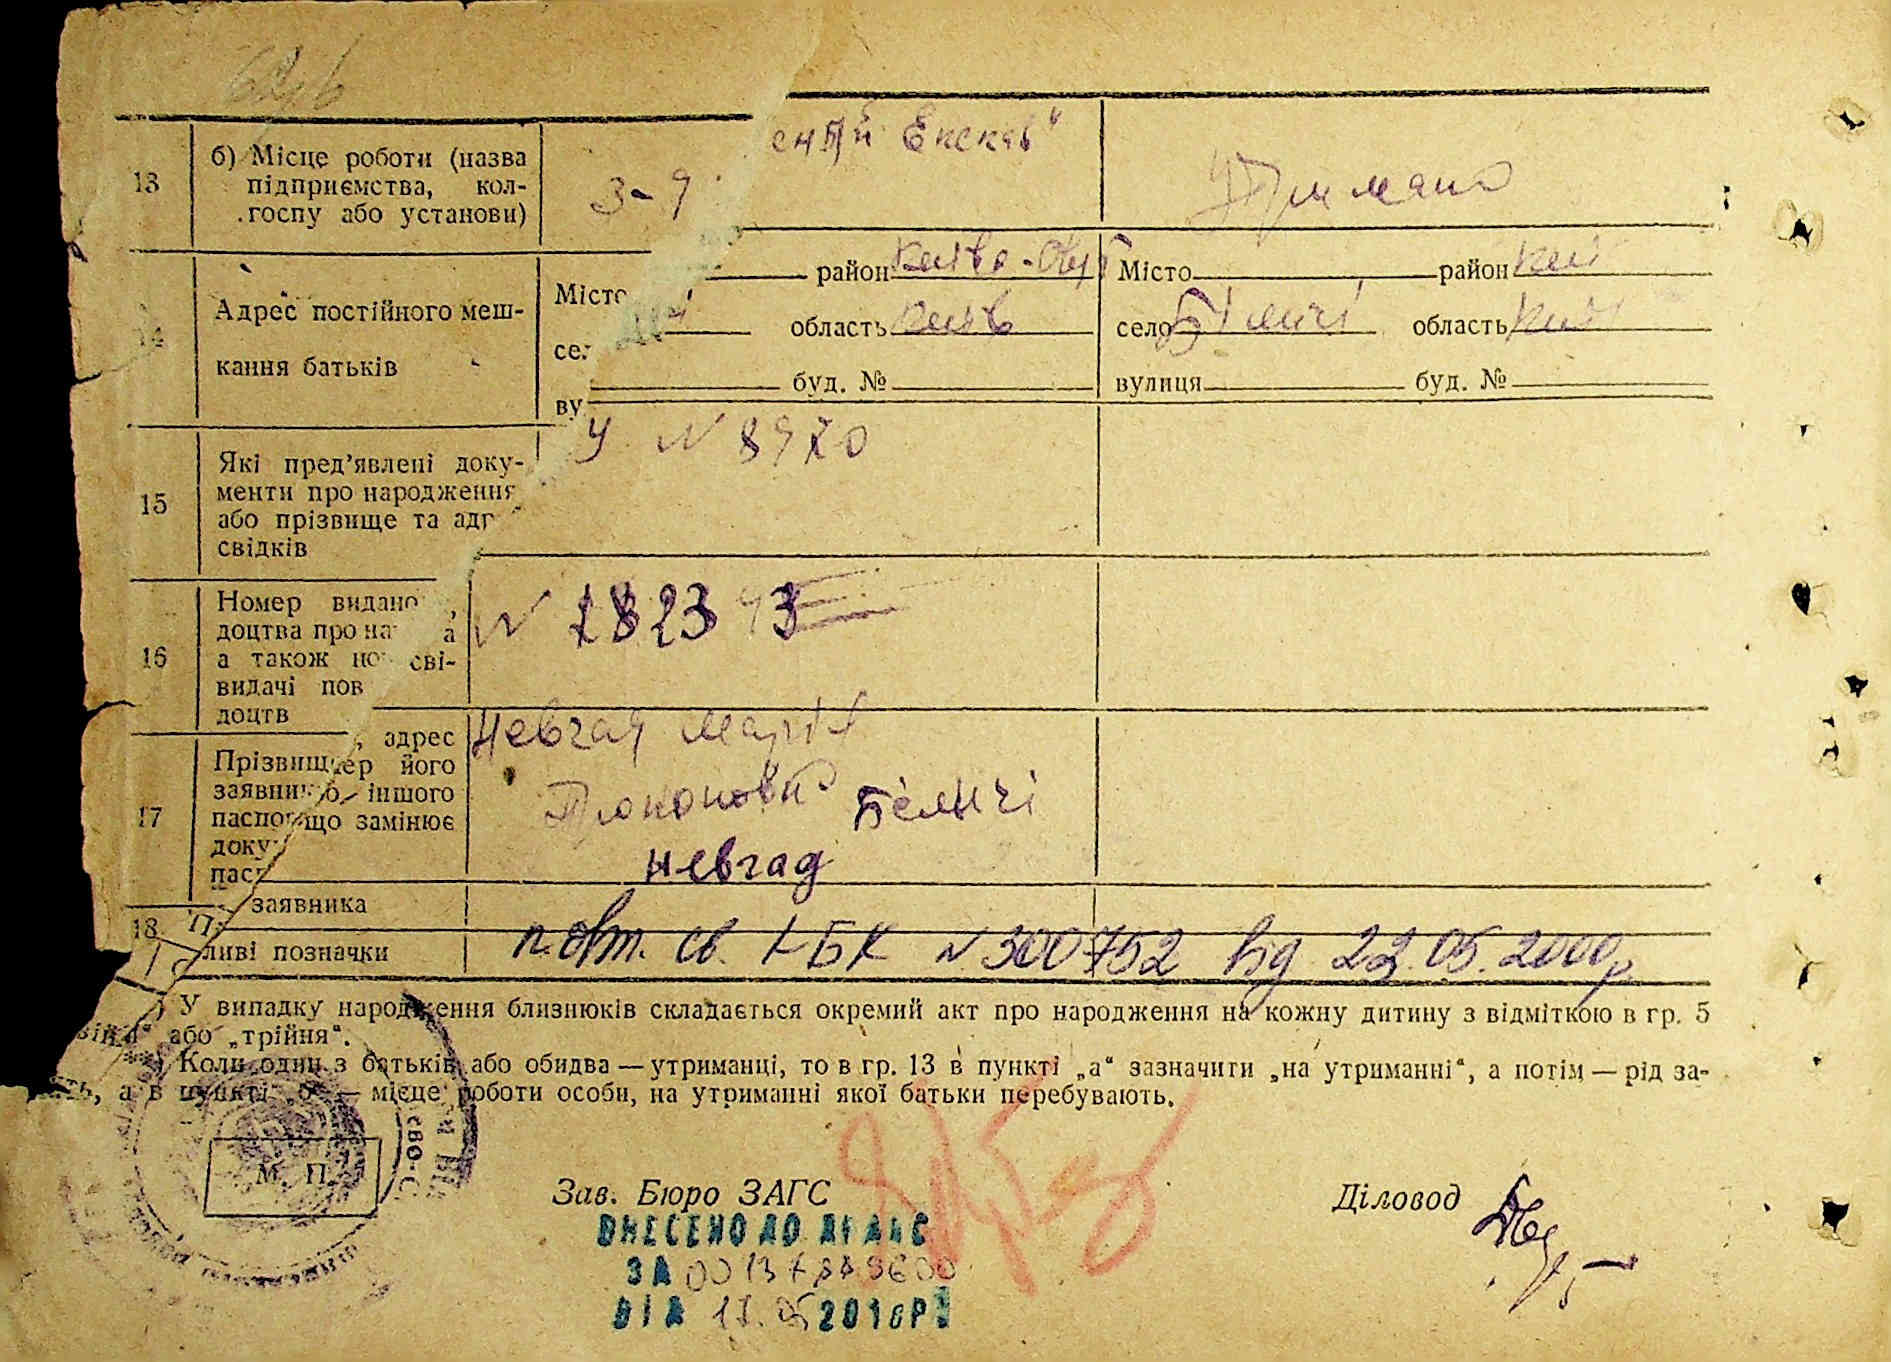 13
б) Місце роботи (назва
підприємства, кол-
госпу або установи)
З-
Екскав"
Утримана
14
Адрес постійного меш-
кання батьків
Місто район Києво- область Київ
буд. №
Місто район Киї
село Біличі область Киї
вулиця буд. №
15
Які пред'явлені доку-
менти про народження
або прізвище та адр
свідків
У N 8970
16
Номер видано
доцтва про на а
а також но сві-
видачі пов
доцтв
N
17
, адрес
Прізвищ ер його
заявни іншого
паспо що замінює
доку
пас
Невгад Марія
Прокоповна Біличі
Невгад
18
заявника
ливі позначки
повт. св. І-БК N 300752 від 22.05.2000р
У випадку народження близнюків складається окремий акт про народження на кожну дитину з відміткою в гр. 5
або „трійня“.
Коли один з батьків або обидва — утриманці, то в гр. 13 в пункті „а“ зазначити „на утриманні“, а потім — рід за-
а в пункті „б“ — місце роботи особи, на утриманні якої батьки перебувають.
М. П.
Зав. Бюро ЗАГС
Діловод
ВНЕСЕНО ДО ДРАЦС
ЗА
ВІД 2016Р.